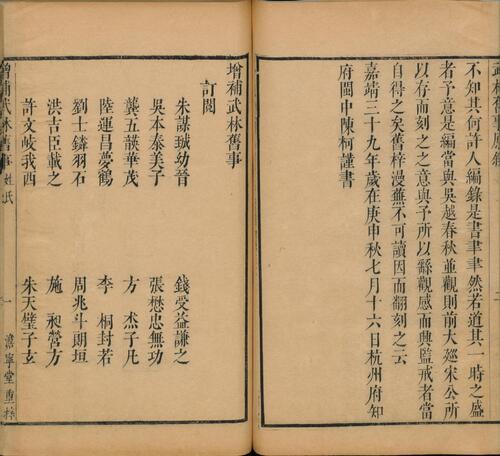 不知其何許人編錄是書聿聿然若道其一時之盛
者予意是編當與吳越春秋並觀則前大廵宋公所
以存而刻之之意與予所以繇觀感而興監戒者當
自得之矣舊梓漫蕪不可讀因而翻刻之云
嘉靖三十九年歲在庚申秋七月十六日杭州府知
府閩中陳柯謹書
增補武林舊事
訂閱
朱謀㙔幼晉 錢受益謙之
吳本泰美子 張懋忠無功
龔五韺華茂 方杰子凡
陸運昌夢鶴 李桐封若
劉士鏻羽石 周兆斗朗垣
洪吉臣載之 施 營方
許文岐我西 朱天璧子玄
增補武林舊事 姓氏 一 澹寧堂重梓